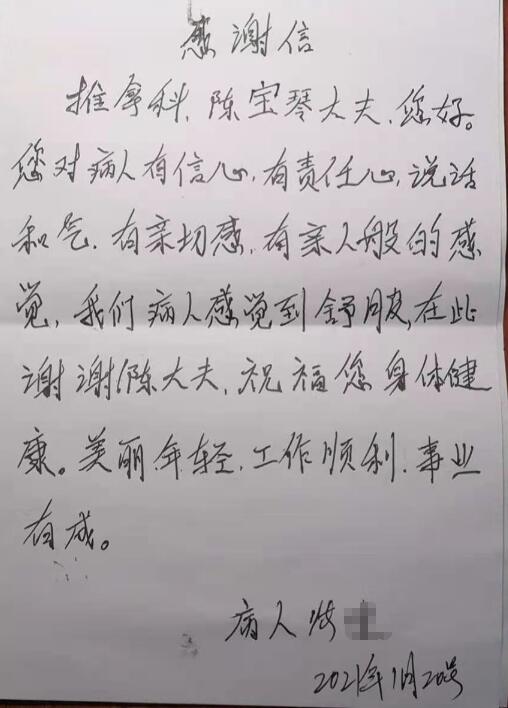 感谢信
推拿科，陈宝琴大夫，您好。
您对病人有信心，有责任心，说话
和气，有亲切感，有亲人般的感
觉，我们病人感觉到舒服，在此
谢谢陈大夫，祝福您身体健
康。美丽年轻，工作顺利，事业
有成。
病人
2021年1月20号